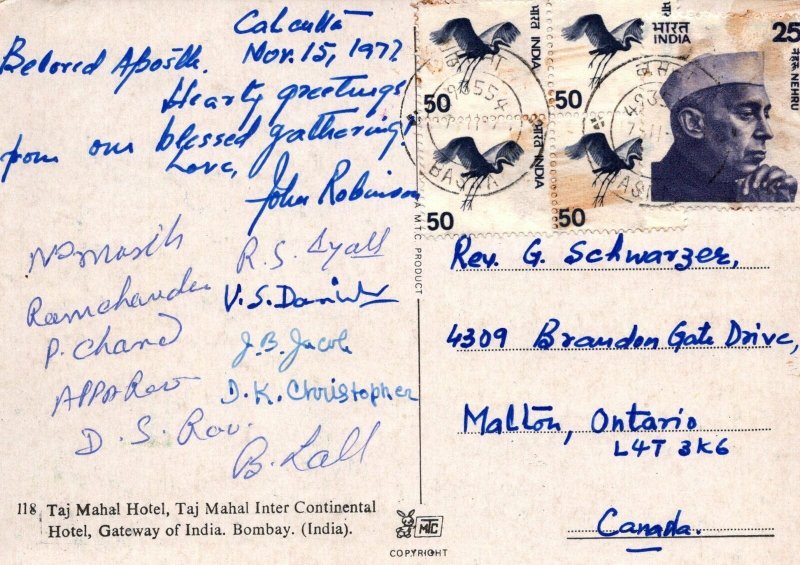 Calcutta
Nov. 15, 1977
Beloved Apostle.
Hearty greetings
from our blessed gathering!
Love,
John Robinson
N Masih
R. S. Lyall
Ramchander
V. S. Daniel
P. Chand
J. B. Jacob
APPA Rao
D. K. Christopher
D. S. Rao.
B. Lall
118 Taj Mahal Hotel, Taj Mahal Inter Continental
Hotel, Gateway of India. Bombay. (India).
MTC
COPYRIGHT
A M.T.C. PRODUCT
भारत INDIA
50
भारत INDIA
50
भारत INDIA
50
50
भारत
INDIA
25
नेहरू NEHRU
Rev. G. Schwarzer,
4309 Brandon Gate Drive,
Malton, Ontario
L4T 3K6
Canada.